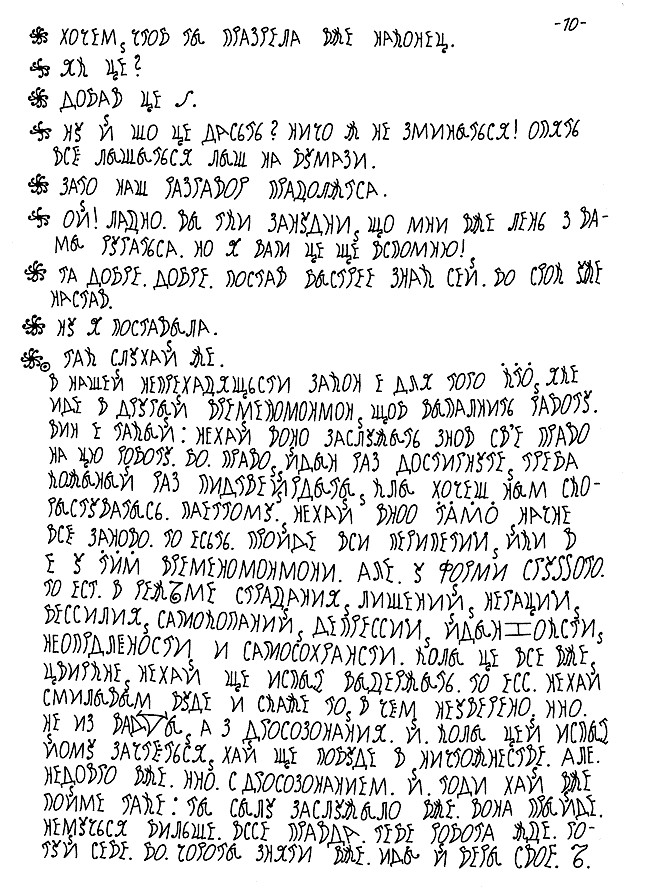 -10-
ХОЧЕМ, ЧТОБ ТЫ ПРАЗРЕЛА ВЖЕ НАКОНЕЦ.
ЯК ЦЕ?
ДОБАВ ЦЕ
НУ Й ШО ЦЕ ДАСЬТЬ? НИЧО Ж НЕ ЗМИНЫТЬСЯ! ОПЯТЬ
ВСЕ ЛЫШЫТЬСЯ ЛЫШ НА БУМАЗИ.
ЗАТО НАШ РАЗГАВОР ПРАДОЛЖТСА.
ОЙ! ЛАДНО. ВЫ ТКИ ЗАНУДНИ, ЩО МНИ ВЖЕ ЛЕНЬ З ВА-
МЫ РУГАТЬСА. НО Я ВАМ ЦЕ ЩЕ ВСПОМНЮ!
ТА ДОБРЕ. ДОБРЕ. ПОСТАВ БЫСТРЕЕ ЗНАК СЕЙ. БО СРОК УЖЕ
НАСТАВ.
НУ Я ПОСТАВЫЛА.
ТАК СЛУХАЙ ЖЕ.
В НАШЕЙ НЕПРЕХАДЯЩЬСТИ ЗАКОН Е ДЛЯ ТОГО КТО, ЯКЕ
ИДЕ В ДРУГЫЙ ВРЕМЕНОМОНМОН, ЩОБ ВЫПАЛНИТЬ РАБОТУ.
ВИН Е ТАКЫЙ: НЕХАЙ ВОНО ЗАСЛУЖЫТЬ ЗНОВ СВ'Е ПРАВО
НА ЦЮ РОБОТУ. БО. ПРАВО, ЙДЫН РАЗ ДОСТИГНУТЕ, ТРЕБА
КОЖНЫЙ РАЗ ПИДТВЕЙРДАТЫ, КЛЫ ХОЧЕШ НЫМ СКО-
РЫСТУВАТЫСЬ. ПАЕТТОМУ. НЕХАЙ ВНОО ТАМО НАЧНЕ
ВСЕ ЗАНОВО. ТО ЕСЬТЬ. ПРОЙДЕ ВСИ ПЕРИПЕТИИ, ЙКИ В
Е У ТИМ ВРЕМЕНОМОНМОНИ. АЛЕ. У ФОРМИ
ТО ЕСТ. В СТРАДАНИЯ, ЛИШЕНИЙ, НЕГАЦИЙ,
БЕССИЛИЯ, САМОКОПАНИЙ, ДЕПРЕССИИ,
НЕОПРДЛЕНОСТИ И САМОСОХРАНСТИ. КОЛЫ ЦЕ ВСЕ ВЖЕ,
НЕХАЙ ЩЕ ВЫДЕРЖЫТЬ. ТО ЕСС. НЕХАЙ
СМИЛЫВЫМ БУДЕ И СКАЖЕ ТО, В ЧЕМ НЕУВЕРЕНО, ННО.
НЕ ИЗ А З ДРОСОЗНАНИЯ. Й. КОЛЫ ЦЕЙ
ЙОМУ ЗАЧТЕТЬСЯ, ХАЙ ЩЕ ПОБУДЕ В НИЧТОЖНЕСТВЕ. АЛЕ.
НЕДОВГО ВЖЕ. ННО. С ДРОСОЗНАНИЕМ. Й. ТОДИ ХАЙ ВЖЕ
ПОЙМЕ ТАКЕ: ТЫ СЫЛУ ЗАСЛУЖЫЛО ВЖЕ. ВОНА ПРЫЙДЕ.
НЕМУЧЬСЯ БИЛЬШЕ. ВССЕ ПРАВДА. ТЕБЕ РОБОТА ЖДЕ. ГО-
ТУЙ СЕБЕ. БО. ЧОРОТЫ ЗНЯТИ ВЖЕ. ИДЫ Й БЕРЫ СВОЕ.